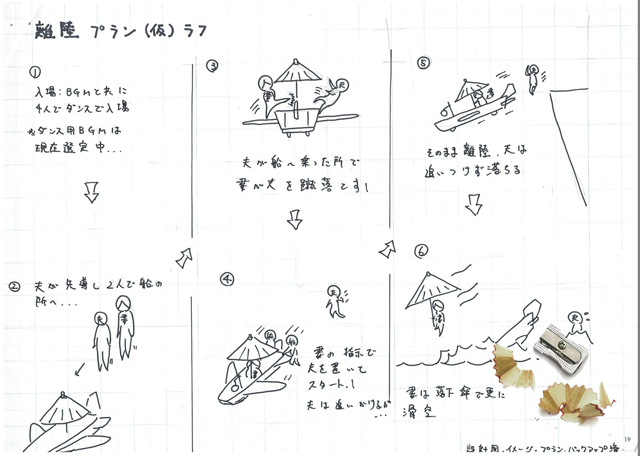 離陸 プラン(仮)ラフ
①
入場:BGMと共に
4人でダンスで入場
※ダンス用BGMは
現在選定中...
②
夫が先導し2人で船の
所へ...
夫
妻
③
夫
夫が船へ乗った所で
妻が夫を蹴落とす!
④
夫
妻の指示で
夫を置いて
スタート!
夫は追いかけるが
...
⑤
夫
そのまま離陸、夫は
追いつけず落ちる
⑥
妻
夫
妻は落下傘で更に
滑空
19
設計図・イメージ・プラン・バックアップ